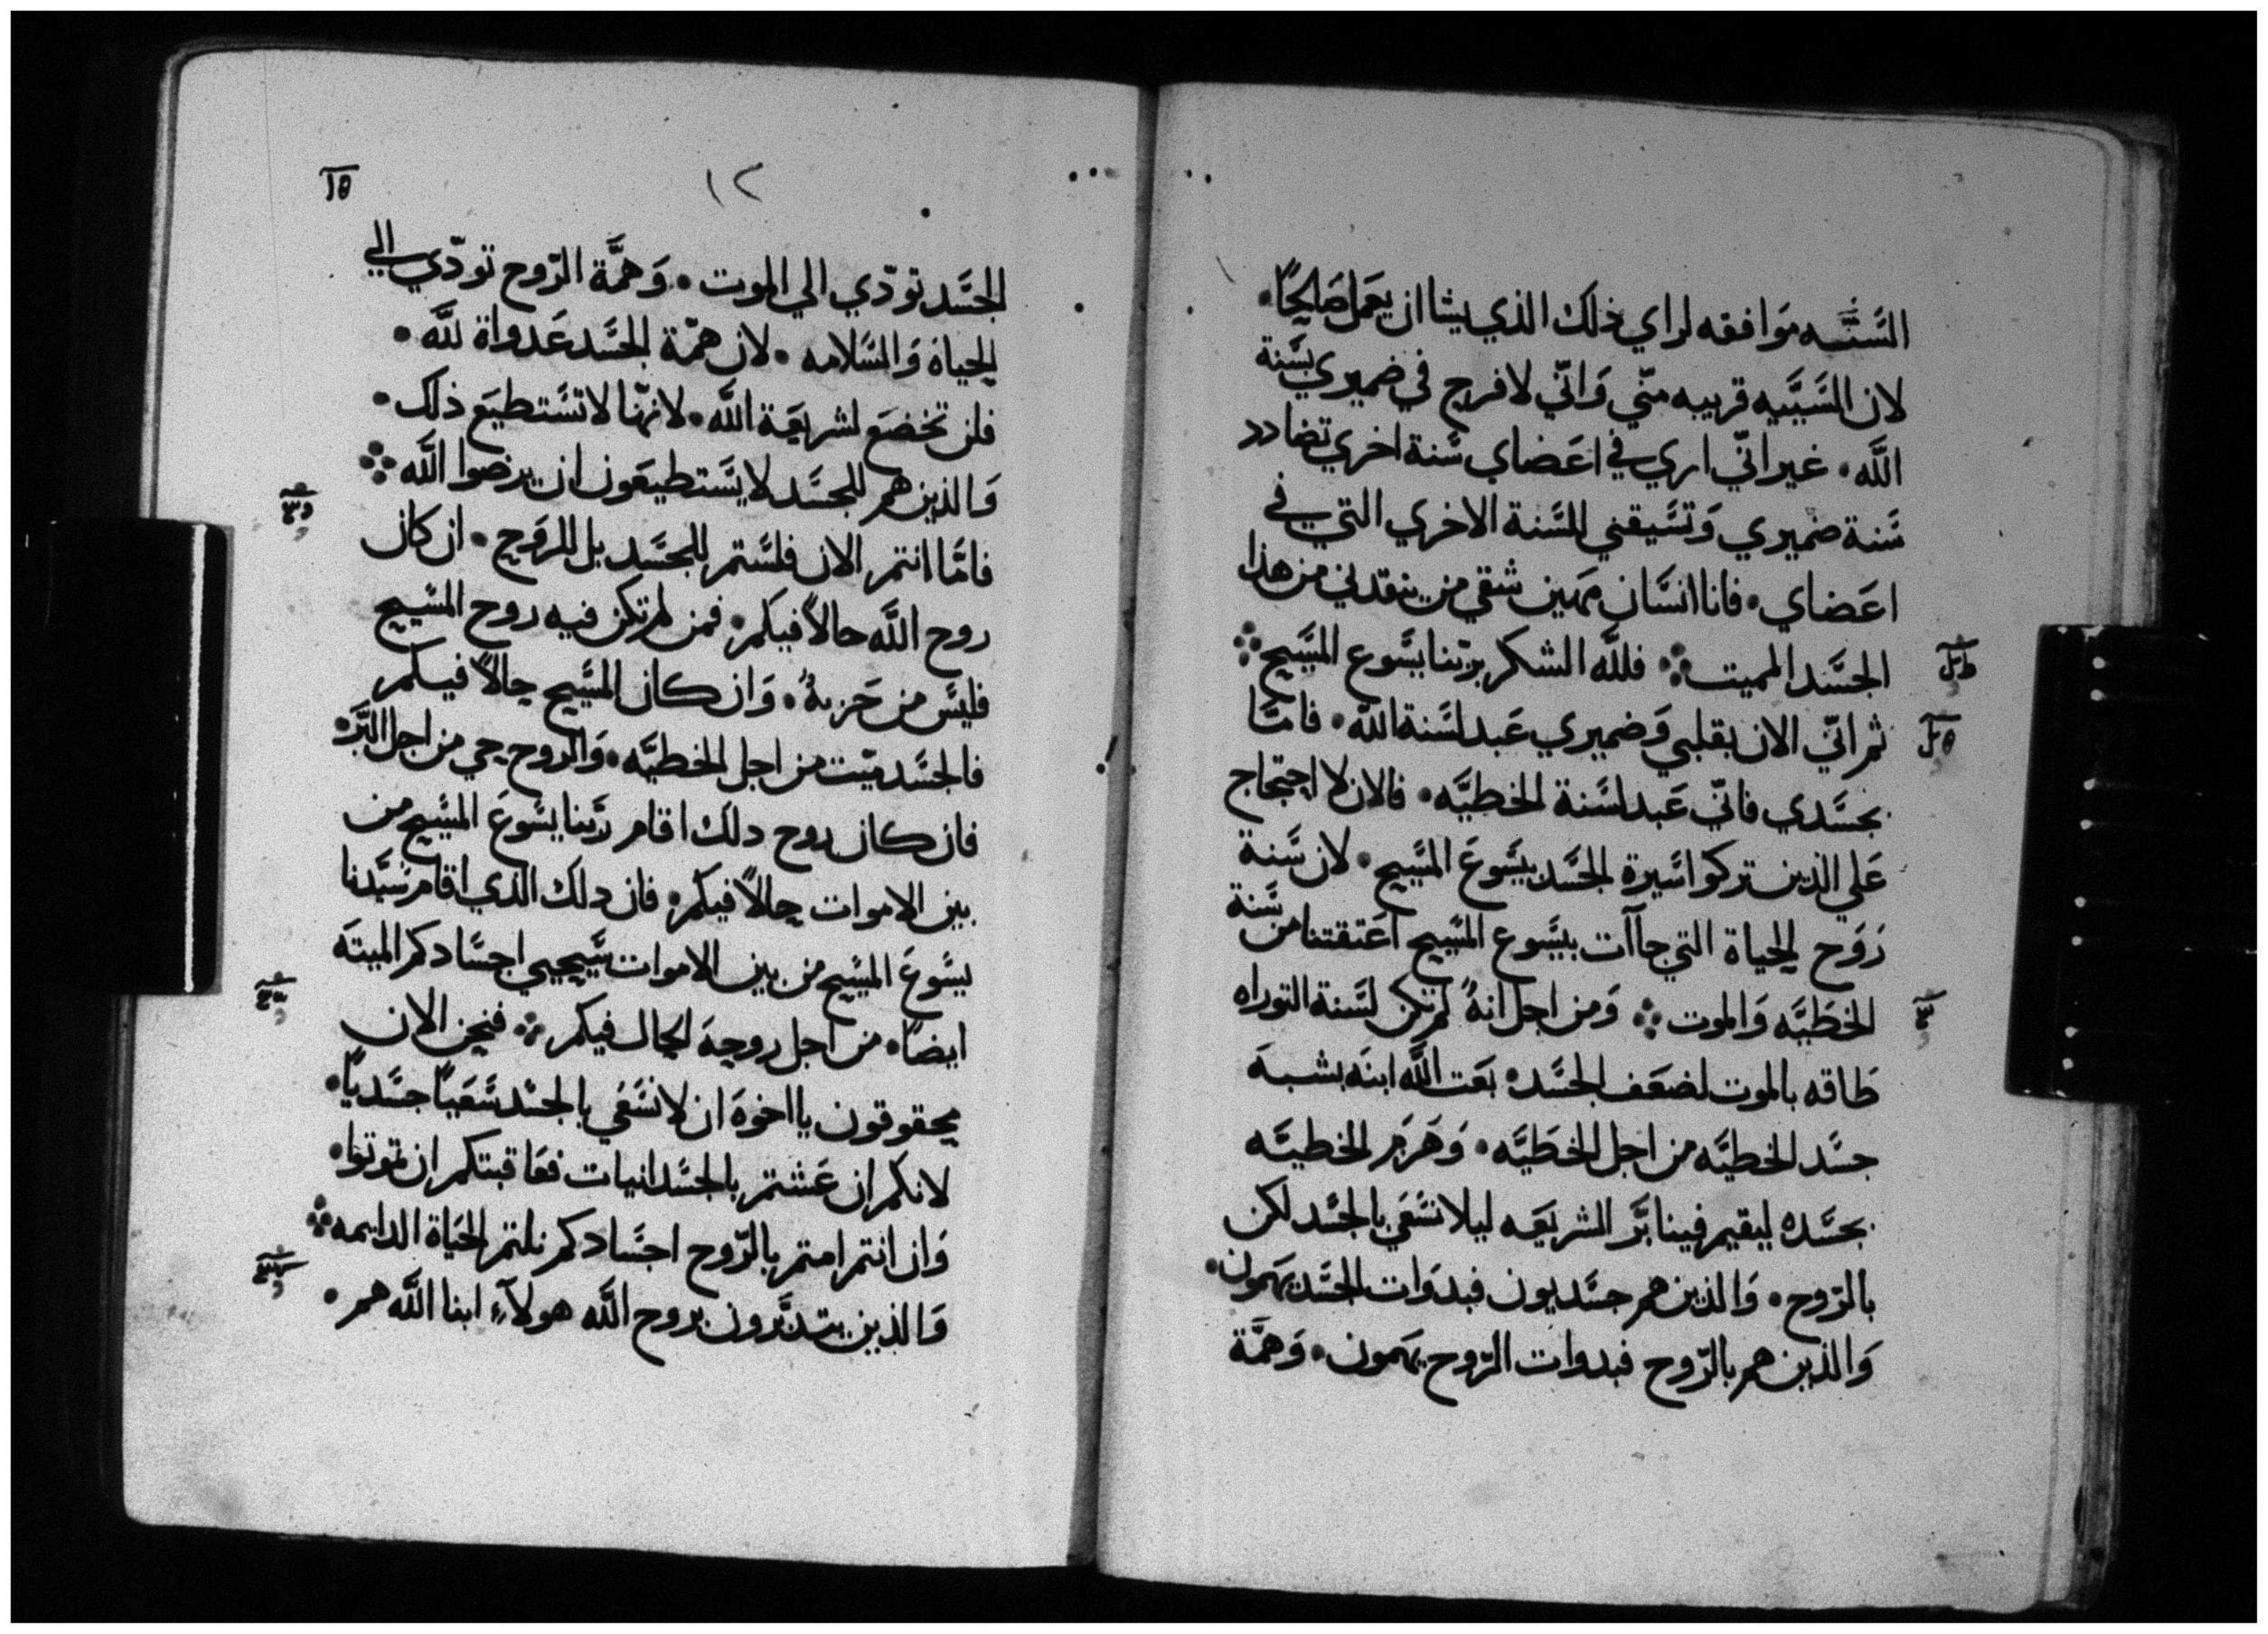 السَّنَّه مَوافقه لراي ذلك الذي يشا ان يعَمل صَالحًا •
لان السَّيَّيه قريبه منّي وَانّي لافرح في ضميري بسَّنة
اللَّه • غير انّي اري في اعَضاي سَّنة اخري تضادد
سَّنة ضميري وَتسَّيقني للسَّنة الاخري التي في
اعَضاي • فانا انسَّان مَهين شقي من ينقدني من هذا
الجسَّد المميت ܀ فللَّه الشكر بربّنا يسَّوع المسَّيح ܀
ثم انّي الان بقلبي وَضميري عَبد لسَّنة اللَّه • فامَّا
بجسَّدي فانّي عَبد لسَّنة الخطيَّه • فالان لا احتجاج
عَلي الذين تركوا اسَّيرة الجسَّد بيسَّوعَ المسَّيح • لان سَّنة
رَوَح الحياة التي جاآت بيسَّوع المسَّيح اعَتقتنا من سَّنة
الخطَيَّه وَالموت ܀ وَمن اجل انهُ لم تكن لسَّنة التوراه
طَاقه بالموت لضعَف الجسَّد • بعَت اللَّه ابنَه بشبهَ
جسَّد الخطيَّه من اجل الخطَيَّه • وَهَرَم الخطيَّه
بجسَّده ليقيم فينا برَّ الشريعَه ليلا نسَّعَي بالجسَّد لكن
بالرّوح • وَالذين هم جسَّديون فبدوَات الجسَّد يهَمون •
وَالذين هم بالرّوح فبدوات الرّوح يهَمون • وَهمَّة
١٢
الجسَّد تودّي الي الموت • وَهمَّة الرّوح تودّي الي
الحياة وَالسَّلامه • لان همّة الجسَّد عَدواة للَّه •
فلن تخضعَ لشريعَة اللَّه • لانهّا لا تسَّتطيعَ ذلك •
وَالذين هم للجسَّد لا يسَّتطيعَون ان يرضوا اللَّه ܀
فامَّا انتم الان فلسَّتم للجسَّد بل للروَح • ان كان
روح اللَّه حالاً فيكم • فمن لم تكن فيه روح المسَّيح
فليسَّ من حَزبهُ • وَان كان المسَّيح حالاً فيكم
فالجسَّد ميّت من اجل الخطيَّه • وَالروح حي من اجل البَّر •
فان كان روح دلك اقام ربَّنا يسَّوعَ المسَّيح من
بين الاموات حالاً فيكم • فان دلك الذي اقام سَّيّدنا
يسَّوعَ المسَّيح من بين الاموات سَّيحيي اجسَّادكم الميتَه
ايضًا • من اجل روحهَ الحال فيكم ܀ فنحن الان
محقوقون يا اخوهَ ان لا نسَّعَي بالجسَّد سَّعَيًا جسَّديًا •
لانكم ان عَشتم بالجسَّدانيات فعَاقبتكم ان تموتوا •
وَان انتم امتم بالرّوح اجسَّادكم نلتم الحَياة الدايمه ܀
وَالذين يتدبَّرون بروح اللَّه هولآءِ ابنا اللَّه هم •